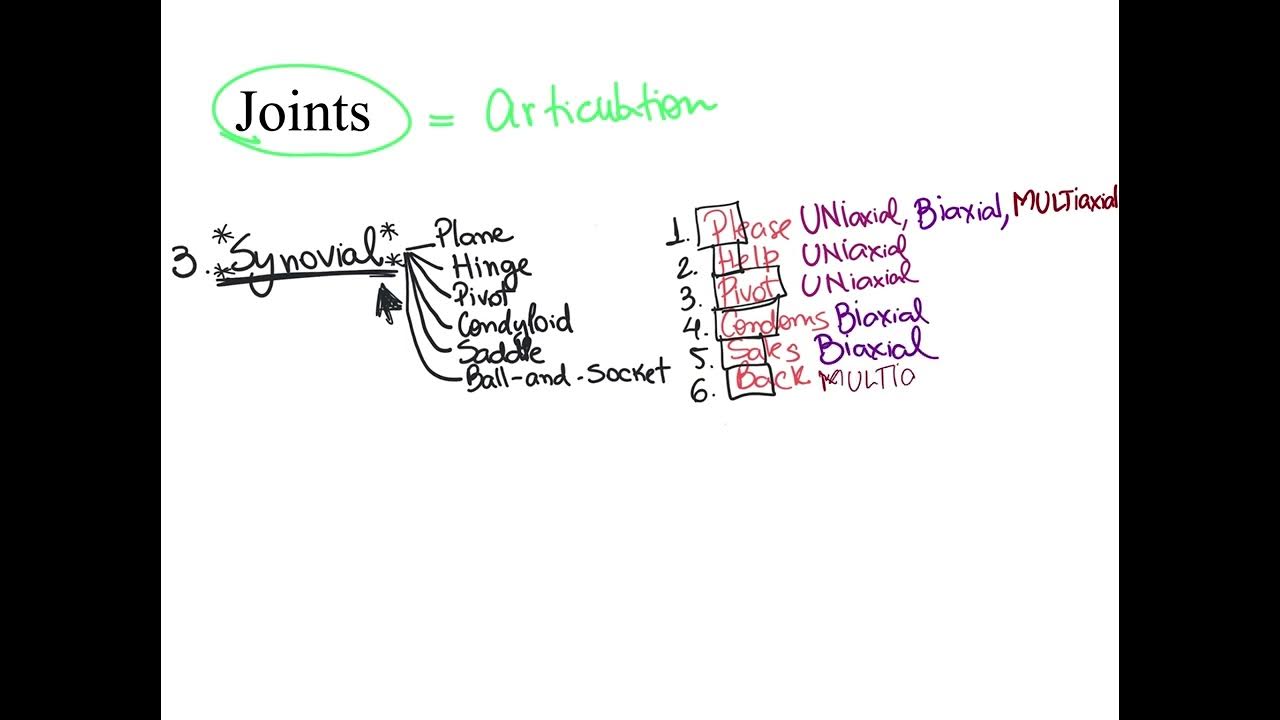 Joints = Articulation
3. *Synovial*
Plane
Hinge
Pivot
Condyloid
Saddle
Ball-and-Socket
1. Please UNiaxial, Biaxial, MULTiaxial
2. Help UNiaxial
3. Pivot UNiaxial
4. Condoms Biaxial
5. Sales Biaxial
6. Back MULTIa